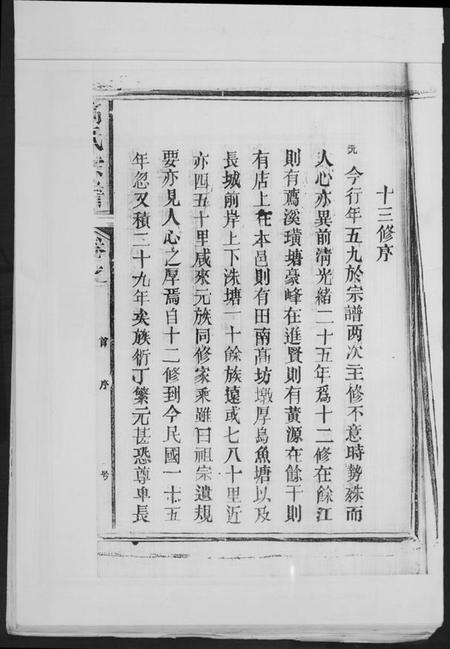 十三修序
元今行年五九於宗譜两次主修不意時勢殊而
人心亦異前清光緒二十五年爲十二修在餘江
則有鴈溪璜塘豪峰在進賢則有黃源在餘干則
有店上在本邑則有田南髙坊墩厚島魚塘以及
長城前岸上下洙塘一十餘族遠或七八十里近
亦四五十里咸來元族同修家乘雖曰祖宗遺規
要亦見人心之厚焉自十二修到今民國二十五
年忽又積三十九年矣族衍丁繁元甚恐尊卑長
氏宗譜
卷之
首序
号